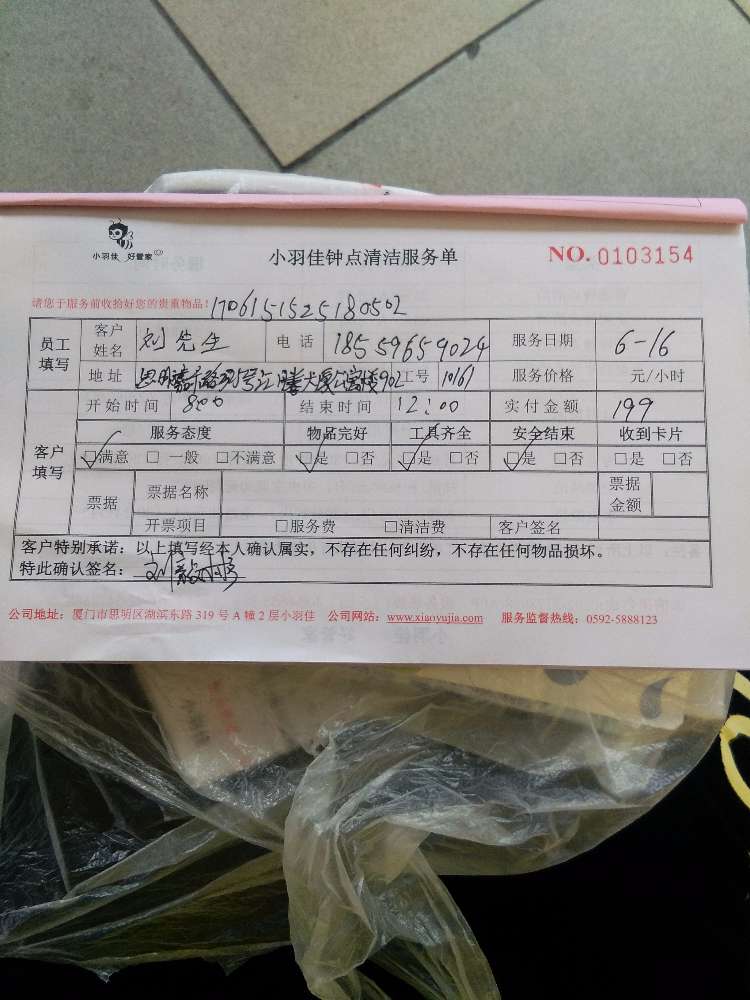 小羽佳 好管家
小羽佳钟点清洁服务单
NO. 0103154
请您于服务前收拾好您的贵重物品! 1706151525180502
员工填写 客户姓名 刘先生 电话 18559659024 服务日期 6-16
地址 思明 号汇腾大厦 902 工号 10161 服务价格 元/小时
客户填写 开始时间 8:00 结束时间 12:00 实付金额 199
服务态度 物品完好 工具齐全 安全结束 收到卡片
☑满意 □ 一般 □不满意 ☑是 □否 ☑是 □否 ☑是 □否 □是 □否
票据 票据名称 票据金额
开票项目 □服务费 □清洁费 客户签名
客户特别承诺：以上填写经本人确认属实，不存在任何纠纷，不存在任何物品损坏。
特此确认签名：刘
公司地址：厦门市思明区湖滨东路 319 号 A 幢 2 层小羽佳 公司网站：www.xiaoyujia.com 服务监督热线：0592-5888123